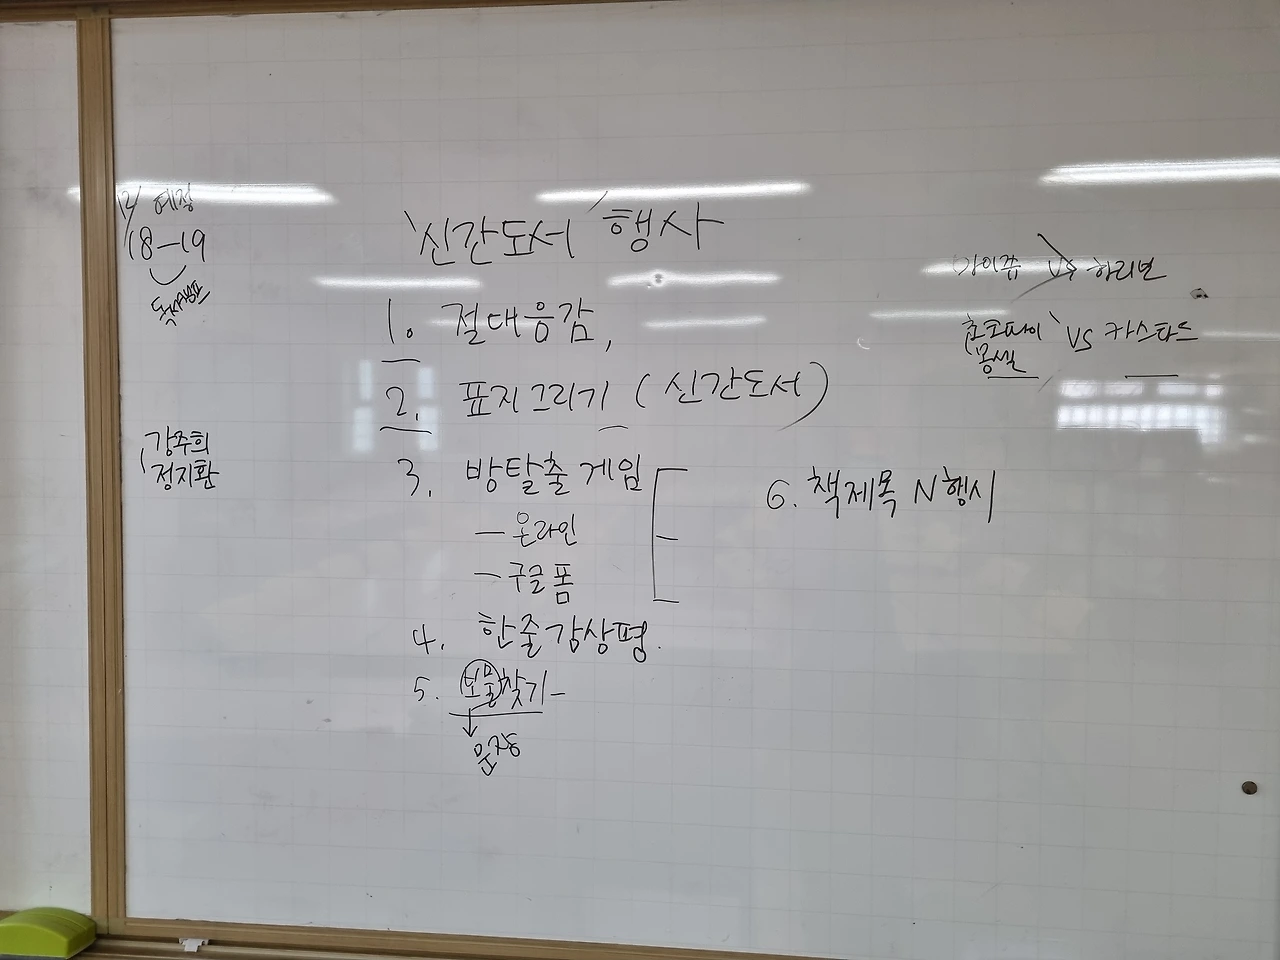 12/ 예정
18-19
독서캠프
강주희
정지환
'신간도서' 행사
1. 절대음감,
2. 표지그리기 (신간도서)
3. 방탈출 게임
- 온라인
- 구글폼
4. 한줄감상평.
5. 보물찾기
문장
6. 책제목 N행시
마이쮸 VS 하리보
초코파이 VS 카스타드
몽쉘